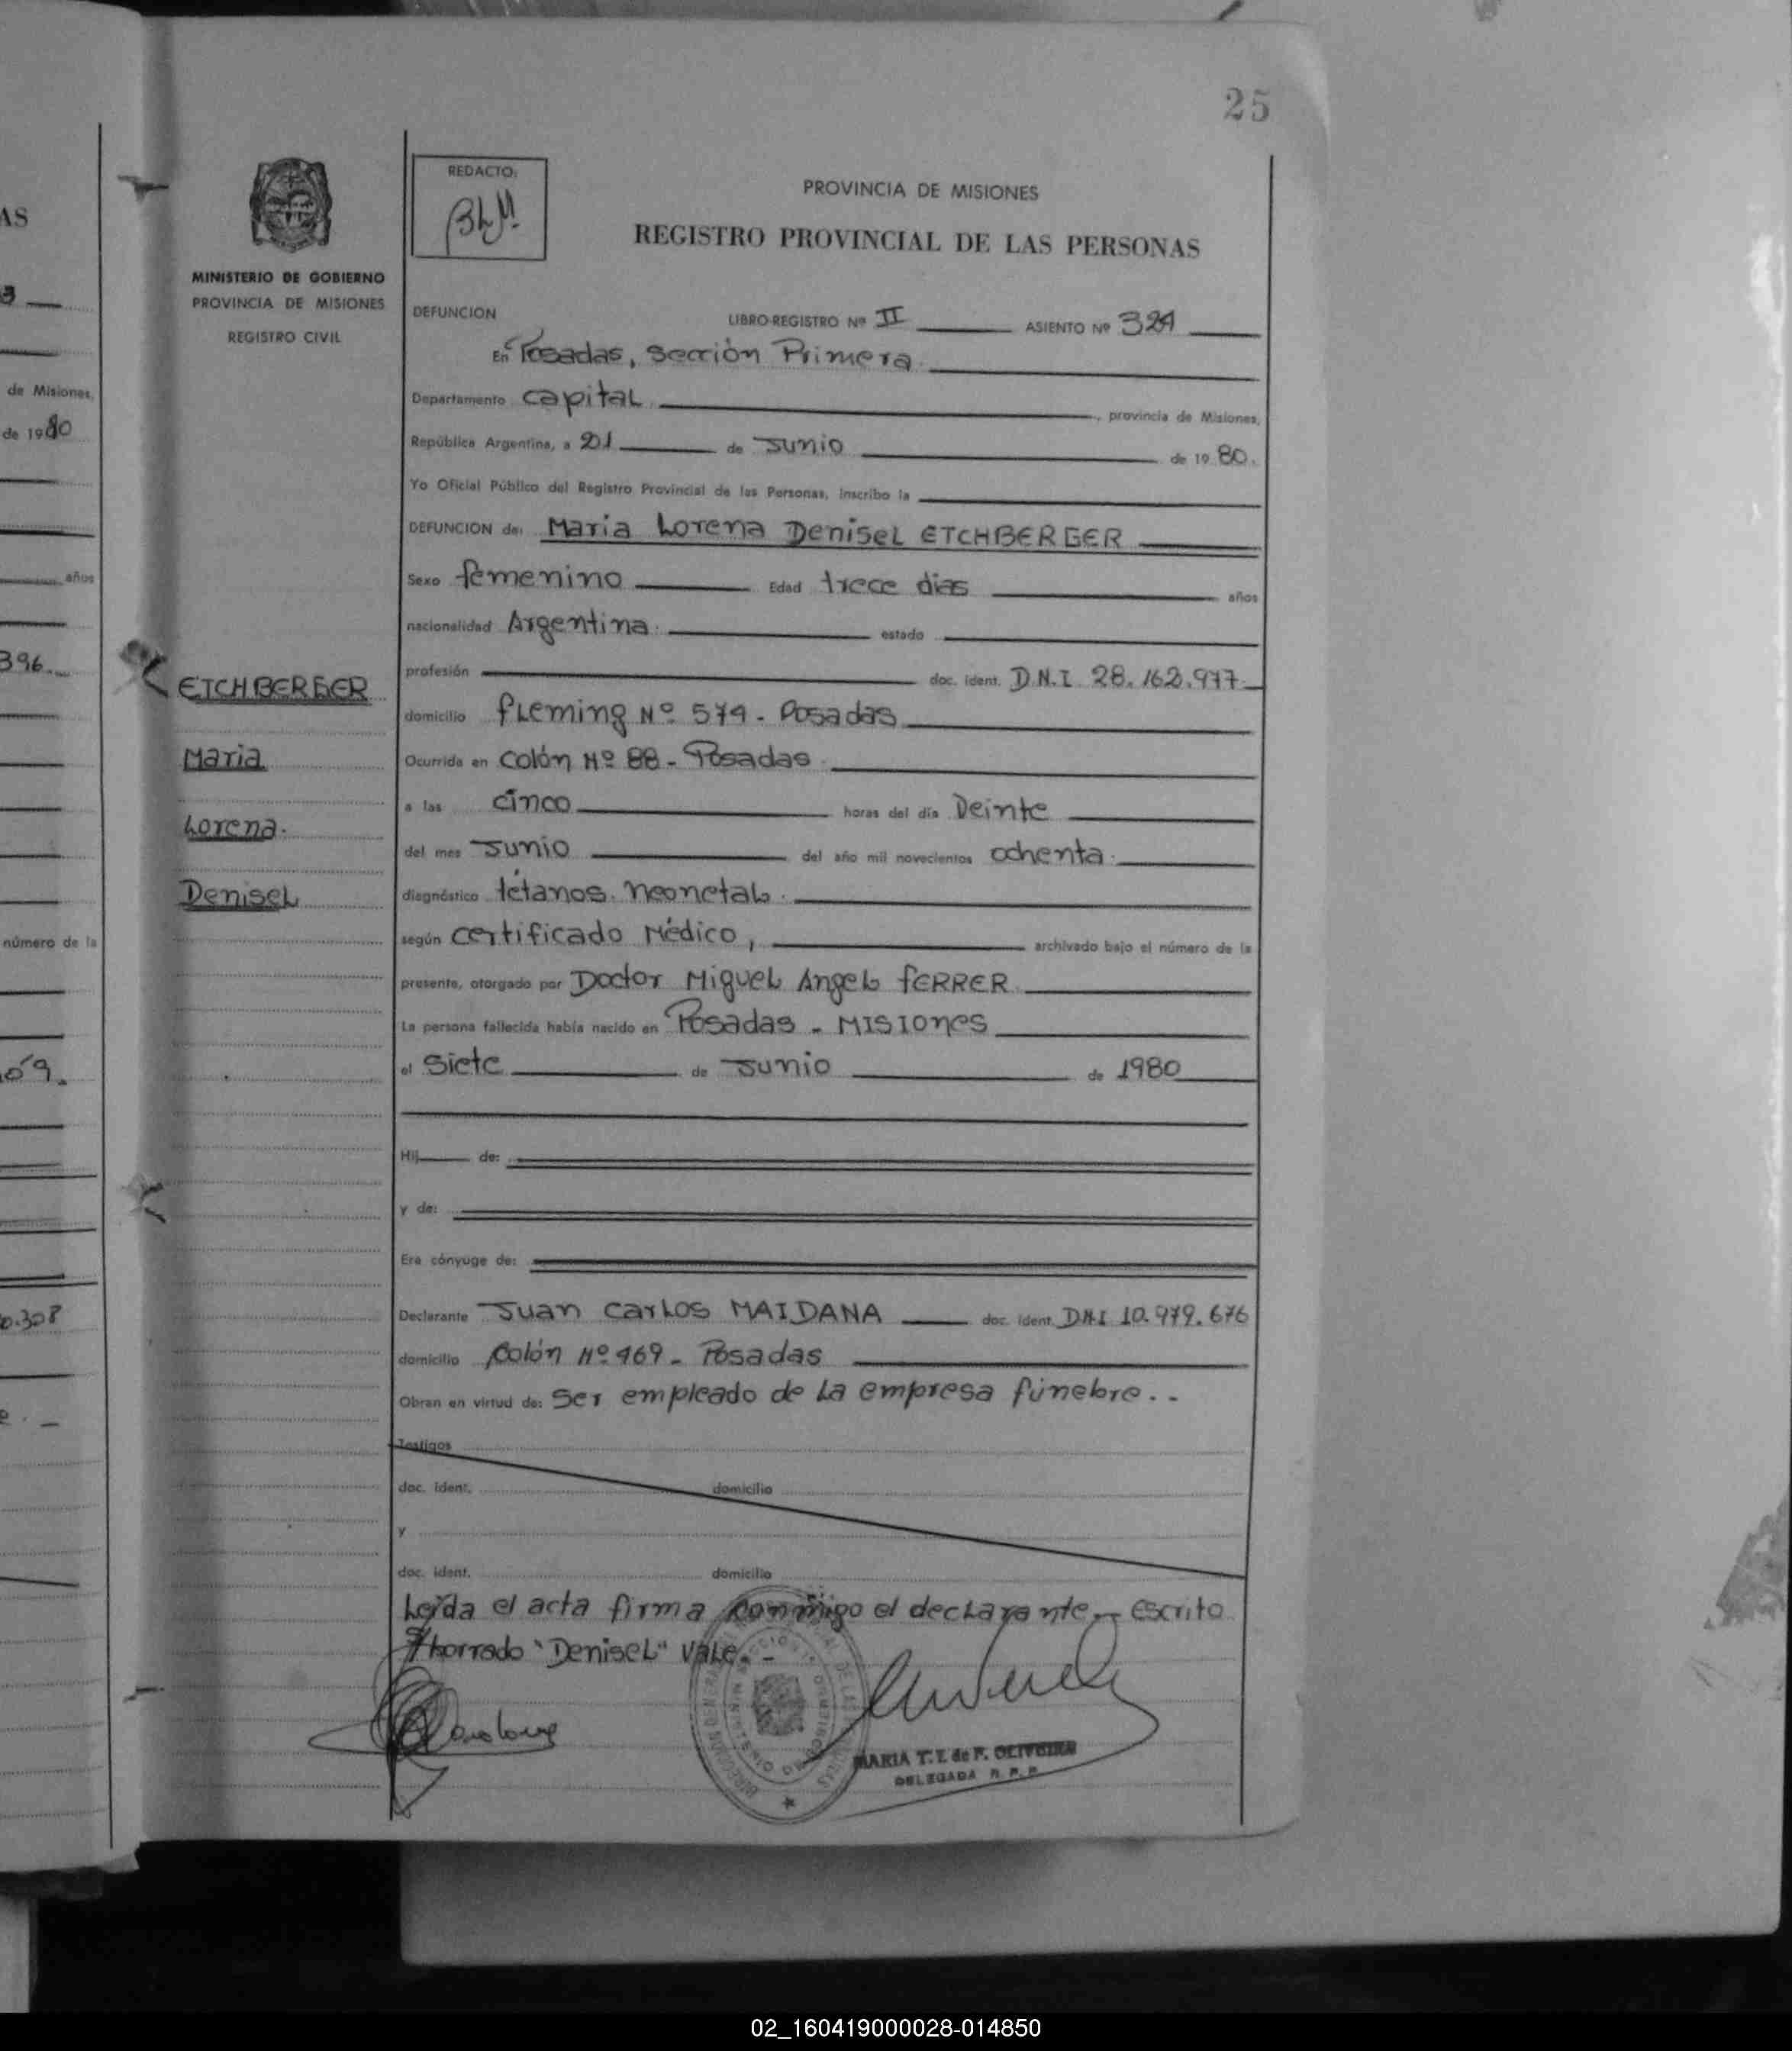 25
AS
3
de Misiones,
de 1980
años
396.
número de la
09.
0.308
e. _
MINISTERIO DE GOBIERNO
PROVINCIA DE MISIONES
REGISTRO CIVIL
ETCHBERGER
Maria
Lorena.
Denisel
REDACTO:
BLM.
PROVINCIA DE MISIONES
REGISTRO PROVINCIAL DE LAS PERSONAS
DEFUNCION LIBRO-REGISTRO Nº II ASIENTO Nº 324
En Posadas, sección Primera.
Departamento capital , provincia de Misiones,
República Argentina, a 21 de Junio de 19 80.
Yo Oficial Público del Registro Provincial de las Personas, inscribo la
DEFUNCION de: Maria Lorena Denisel ETCHBERGER
Sexo femenino Edad trece dias años
nacionalidad Argentina. estado
profesión doc. ident. D.N.I 28.162.977.
domicilio fleming Nº 574 - Posadas
Ocurrida en colón Nº 88 - Posadas.
a las cinco horas del día Veinte
del mes Junio del año mil novecientos ochenta.
diagnóstico tétanos. neonetal.
según certificado Médico, archivado bajo el número de la
presente, otorgado por Doctor Miguel Angel FERRER.
La persona fallecida había nacido en Posadas - MISIONES
el siete de Junio de 1980
Hij de:
y de:
Era cónyuge de:
Declarante Juan Carlos MAIDANA doc. ident. DNI 10.979.676
domicilio Colón Nº 469 - Posadas
Obran en virtud de: ser empleado de la empresa fúnebre. . -
Testigos
doc. ident. domicilio
y
doc. ident. domicilio
Leída el acta firma conmigo el declarante.- escrito
s/borrado "Denisel" vale. -
MARIA T. I. de F. OLIVEIRA
DELEGADA R. P. P.
02_160419000028-014850